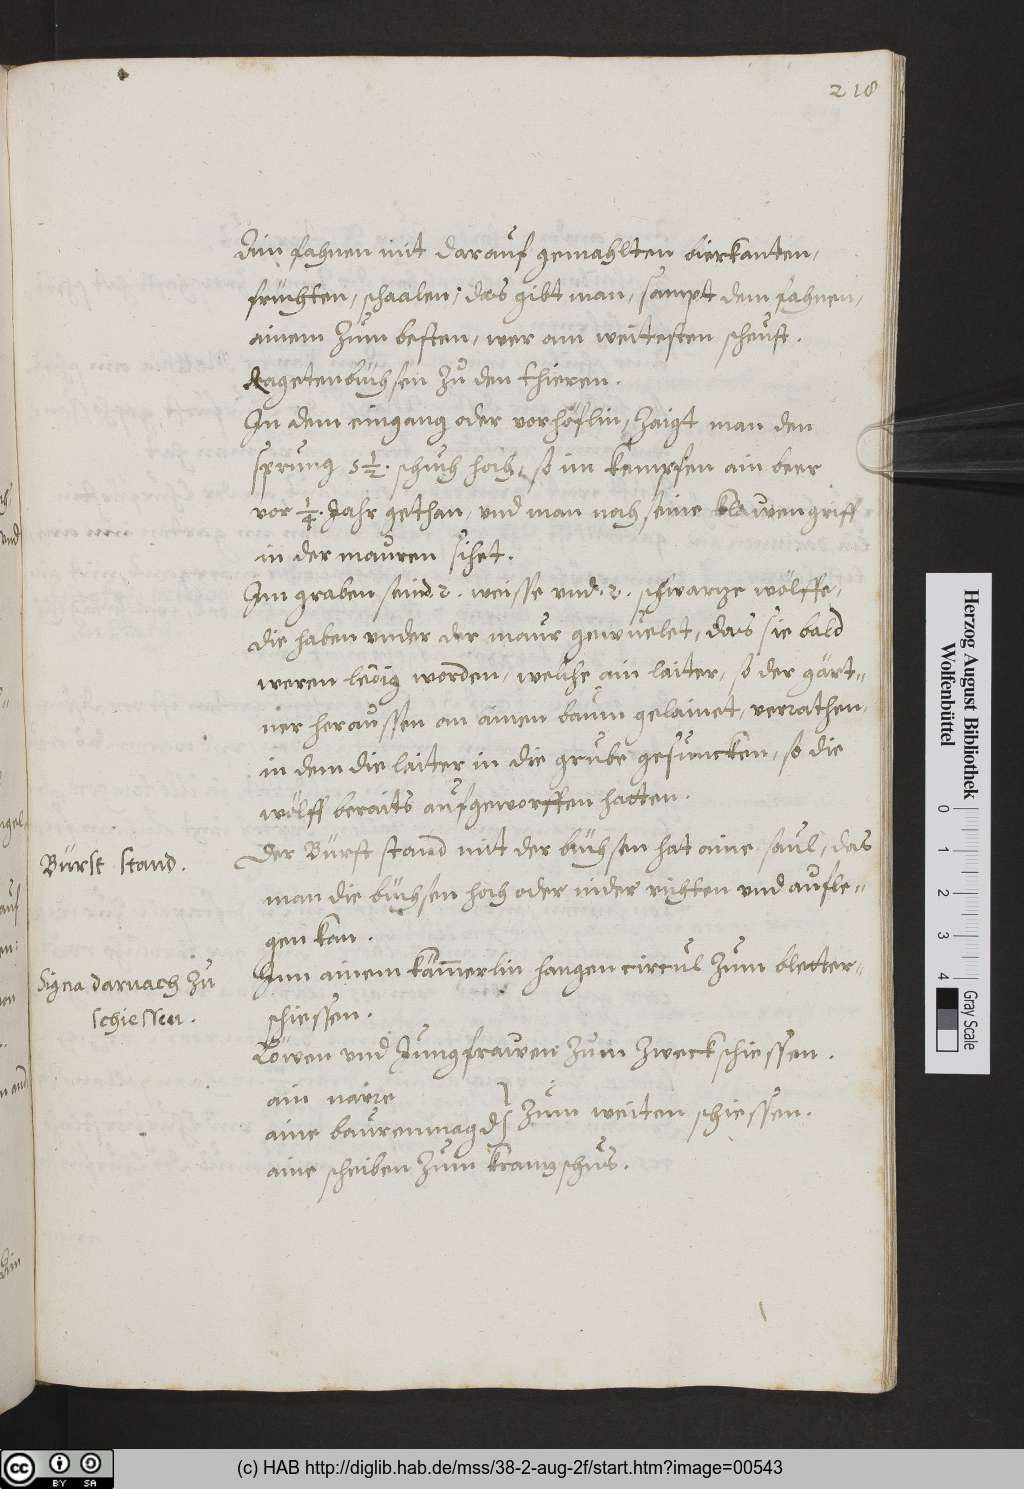 218
Ain fahnen mit darauf gemahlten vierkanten,
früchten, schaalen, das gibt man, sampt dem fahnen,
ainem zum besten, wer am weitesten scheust.
Ragetenbüchsen zu den thieren.
In dem eingang oder vorhöflin, zaigt man den
sprung 5 1/2. schuch hoch, so im kempfen ain beer
vor 1/4. Jahr gethan, und man noch seine klawengriff
in der mauren sihet.
Im graben seind 2. weisse und 2. schwartze wölffe,
die haben under der maur gewüelet, das sie bald
weren ledig worden, welche ain laiter, so der gärt=
ner heraussen an ainen baum gelainet, verrathen,
in dem die laiter in die grube gesuncken, so die
wölff beraits aufgeworffen hatten.
Bürst stand.
Der Bürst stand mit der büchsen hat aine saul, das
man die büchsen hoch oder nider richten und aufle=
gen kan.
Signa darnach zu
schiessen.
Inn ainem kämerlin hangen circul zum bletter=
schiessen.
Löwen und Jungfrawen zum zweckschiessen.
ain narre
aine baurenmagd } zum weiten schiessen.
aine scheiben zum krantzschus.
Herzog August Bibliothek
Wolfenbüttel
0 1 2 3 4
Gray Scale
cc BY SA
(c) HAB http://diglib.hab.de/mss/38-2-aug-2f/start.htm?image=00543